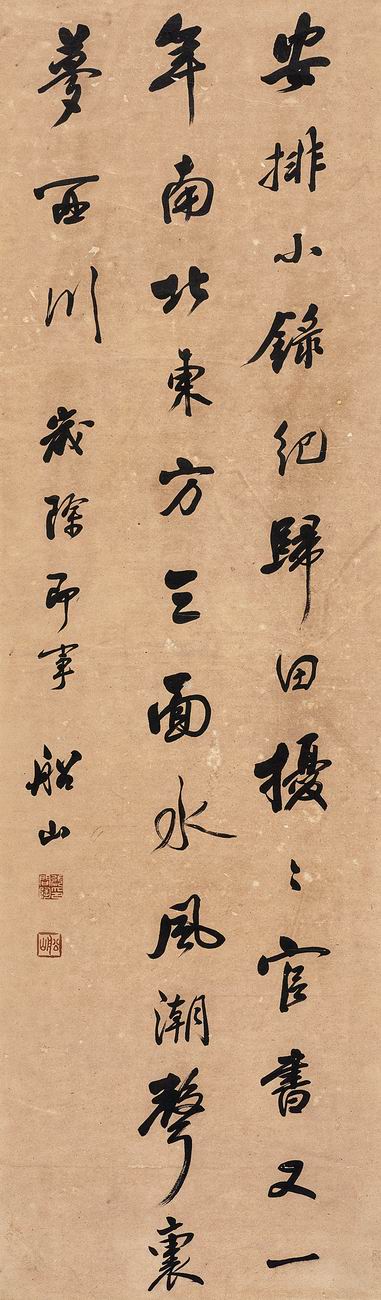 安排小錄紀歸田擾〻官書又一
年南北東方三面水風潮聲裏
夢西川 歲除即事 船山